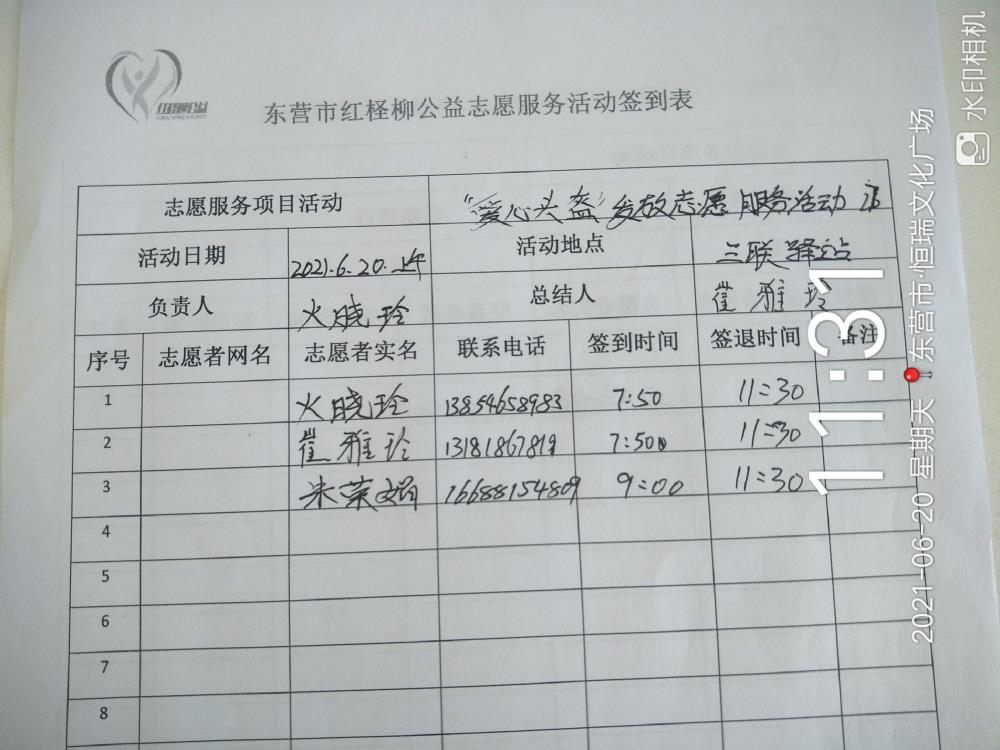 红柽柳公益
东营市红柽柳公益志愿服务活动签到表
志愿服务项目活动 "爱心头盔"发放志愿服务活动
活动日期 2021.6.20.上午 活动地点 三联驿站
负责人 火晓玲 总结人 崔雅玲
序号 志愿者网名 志愿者实名 联系电话 签到时间 签退时间 备注
1 火晓玲 13854658983 7:50 11:30
2 崔雅玲 7:50 11:30
3 朱荣娟 16688154809 9:00 11:30
4
5
6
7
8
11:31
2021-06-20 星期天 东营市·恒瑞文化广场
水印相机